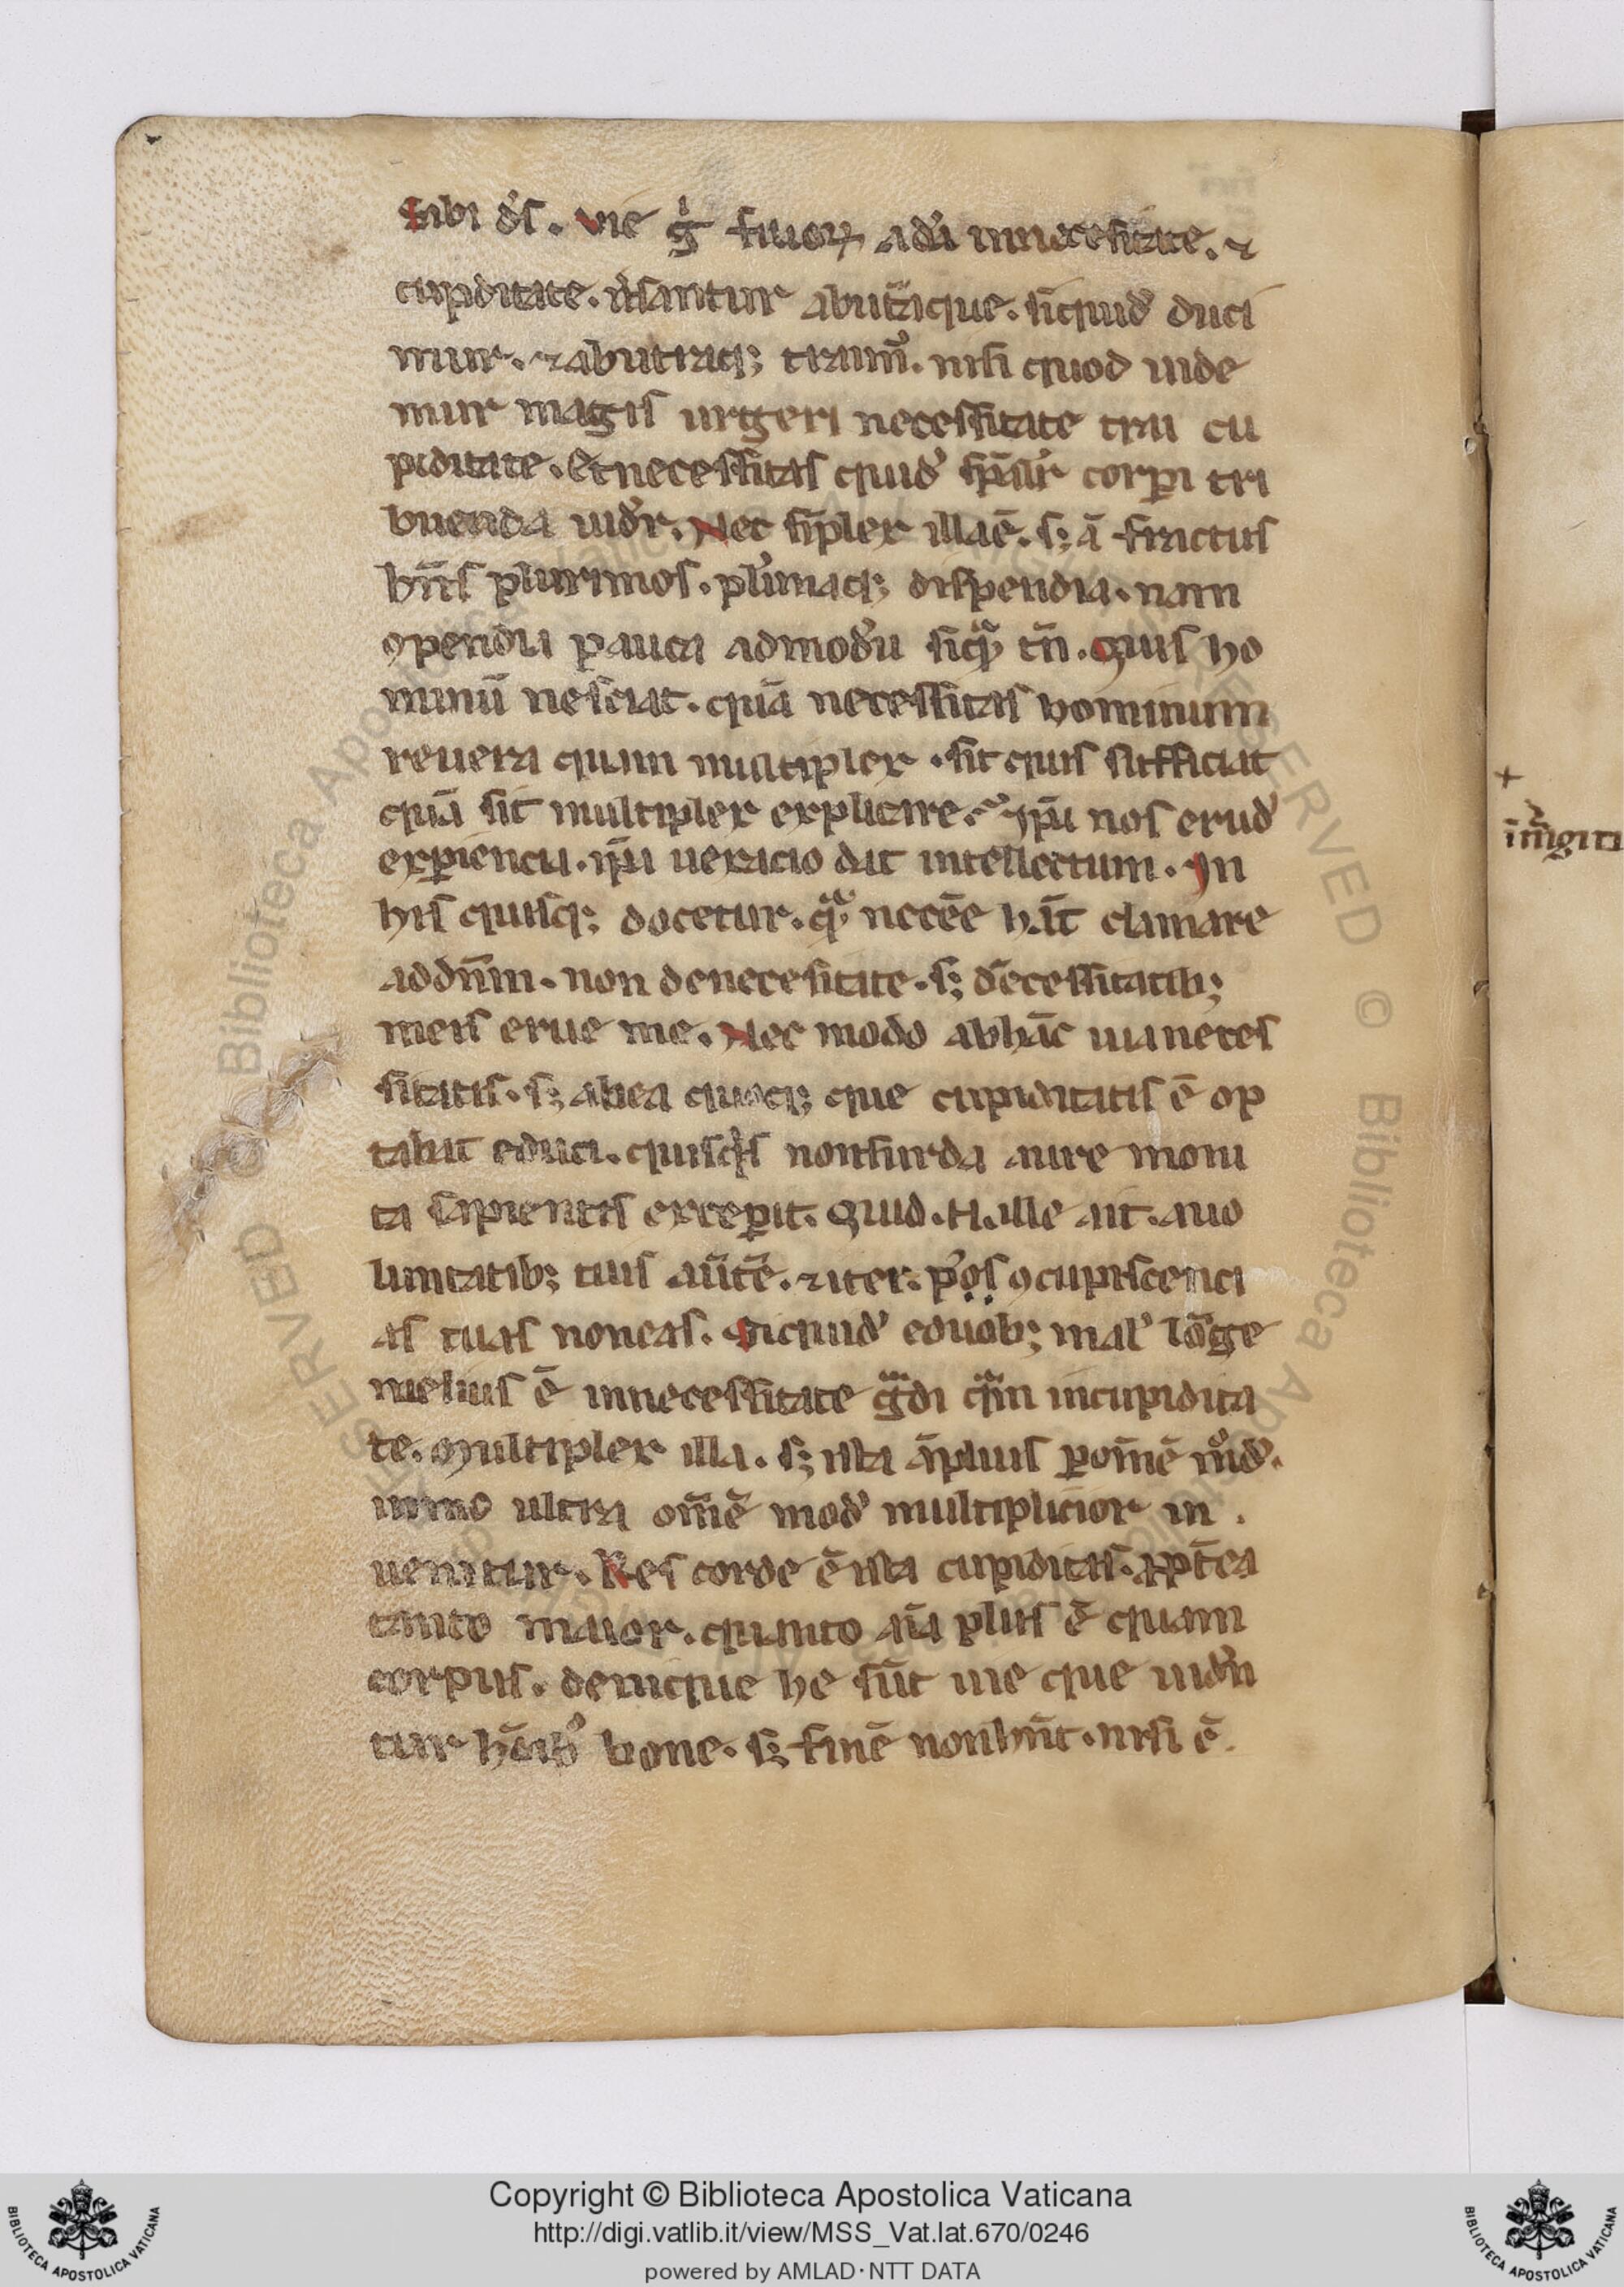 Sibi d's. vie g͛ filiorꝝ ada in necesitate. ⁊
cupiditate. v'santur ab utͣque. siquid' duci
mur. ⁊ ab utraqꝫ traim'. nisi quod vide
mur magis urgeri necessitate trai cu
piditate. Et necessitas quid' sp̄alit' corꝑi tri
buenda vid'r. Nec simplex illa ē. sꝫ ā fractus
hn̄s plurimos. pl'imaqꝫ dispendia. nam
ꝯpendia pauca admodū siqͣ tn̄. Quis ho
minū nesciat. quā necessitas hominum
revera quam multiplex. sit quis sufficiat
quā sit multiplex explicare. ip̄a nos erud'
exꝑiencia. ip̄a vexacio dat intellectum. In
his quisqꝫ docetur. qͣ necēe hāt clamare
ad dn̄m. non de necesitate. sꝫ de necessitatibꝫ
meis erue me. Nec modo ab hāc via neces
sitatis. sꝫ ab ea quoqꝫ que cupiditatis ē op
tabit educi. quisqͥs non surda aure moni
ta sapientis exceꝑit. Quid. N. ille ait. a vo
luntatibꝫ tuis av̄tē. ⁊ iter. p'os ꝯcupiscenci
as tuas non eas. Siquid' e duobꝫ mal' lōge
melius ē in necessitate gͣdi qͣm in cupidita
te. Multiplex illa. sꝫ ista āplius ꝑ om̄ē mod'.
immo ultra om̄ē mod' multiplicior in.
venitur. Res corde ē ista cupiditas. ꝓpt̄ea
tanto maior. quanto aīa plus ē quam
corpus. denique he sūt vie que vid'n
tur hoībꝫ bone. sꝫ finē non hn̄t. nisi ē.
+
Biblioteca Apostolica Vaticana
Copyright © Biblioteca Apostolica Vaticana
http://digi.vatlib.it/view/MSS_Vat.lat.670/0246
powered by AMLAD·NTT DATA
BIBLIOTECA APOSTOLICA VATICANA
BIBLIOTECA APOSTOLICA VATICANA